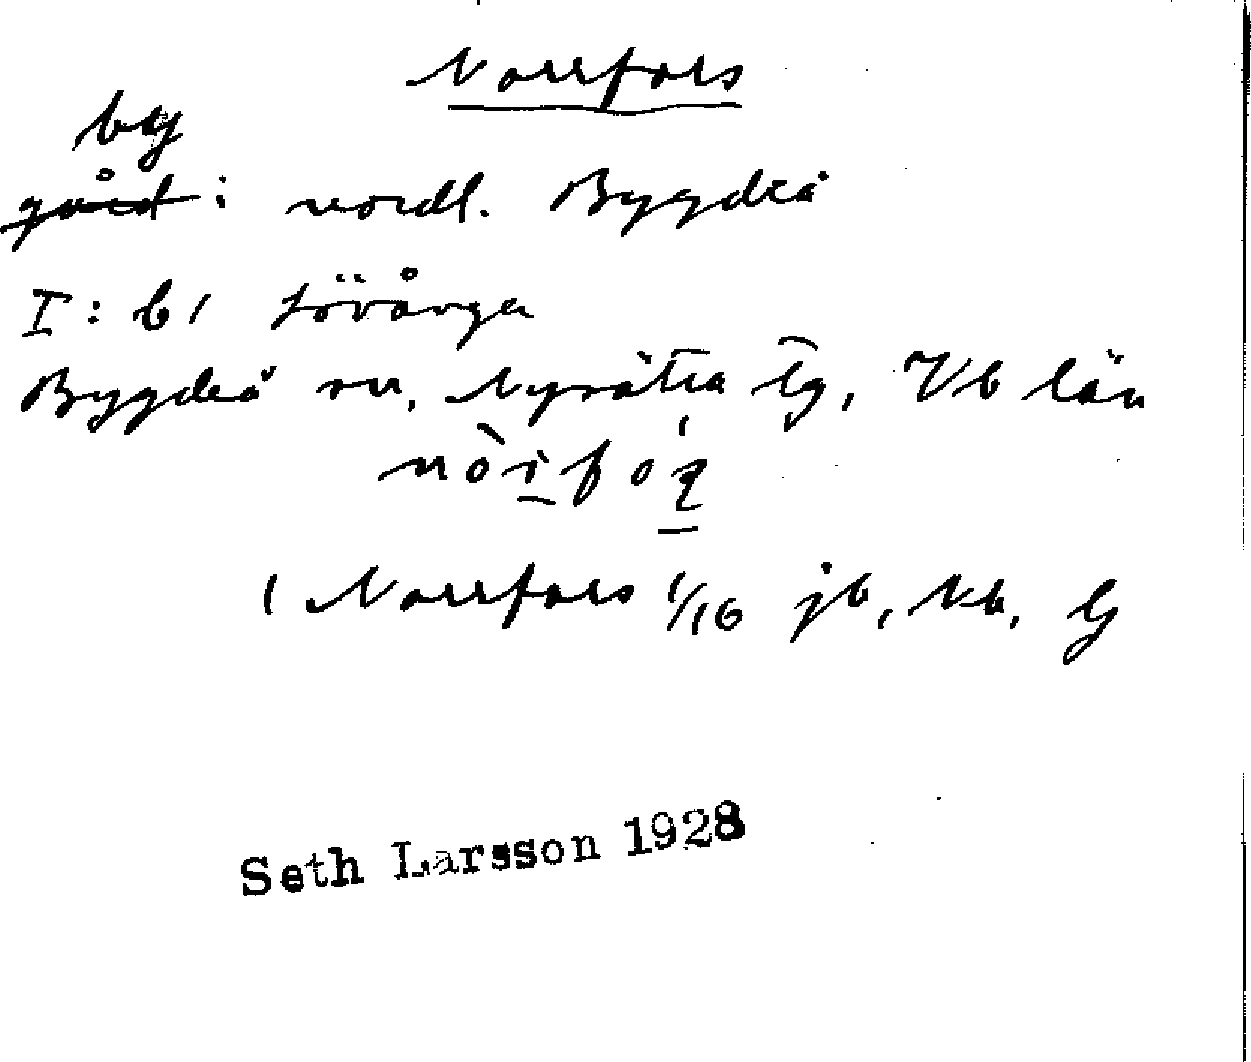 Norrfors
by
gård: nordl. Bygdeå
I: b1 Lövånger
Bygdeå sn, Nysätra tg, Vb län
1 Norrfors 1/16 jb,
Seth Larsson 1928